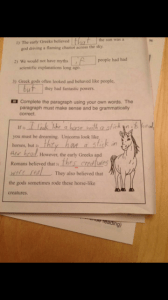 The early Greeks believed that the sun was a
god driving a flaming chariot across the sky.
We would not have myths if people had had
scientific explanations long ago.
Greek gods often looked and behaved like people,
but they had fantastic powers.
Complete the paragraph using your own words. The
paragraph must make sense and be grammatically
correct.
If I look like a horse with a stick on its head
you must be dreaming. Unicorns look like
horses, but they have a stick on
their head. However, the early Greeks and
Romans believed that they
were real. They also believed that
the gods sometimes rode these horse-like
creatures.